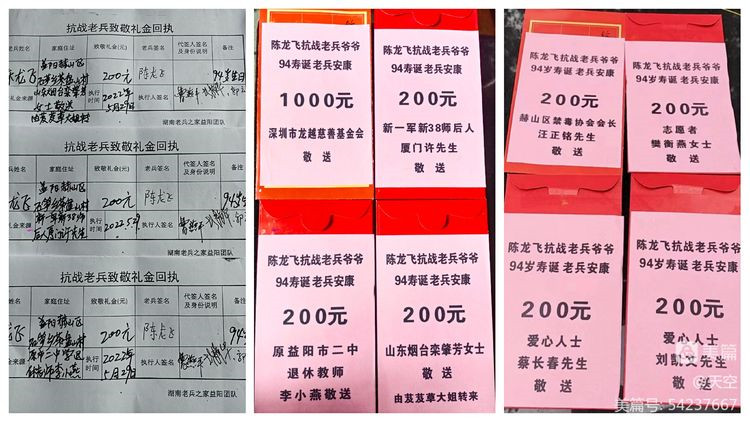 抗战老兵致敬礼金回执
兵姓名
家庭住址
致敬礼金(元)
老兵签名
代签人签名
及身份说明
备注
龙飞
益阳赫山区
200元
陈龙飞
94岁生日
山东烟台栾肇芳
女士敬送
礼金来源
执行
时间
2022年
5月29日
执行人签名
湖南老兵之家益阳团队
抗战老兵致敬礼金回执
家庭住址
致敬礼金(元)
老兵签名
代签人签名
及身份说明
备注
龙飞
益阳赫山区
200元
陈龙飞
新一军新38师
后人厦门许先生
礼金来源
执行
时间
2022.5.29
执行人签名
湖南老兵之家益阳团队
抗战老兵致敬礼金回执
姓名
家庭住址
致敬礼金(元)
老兵签名
代签人签名
及身份说明
备注
龙飞
益阳赫山区
200元
陈龙飞
执行
时间
2022年
5月29日
执行人签名
湖南老兵之家益阳团队
陈龙飞抗战老兵爷爷
94寿诞 老兵安康
1000元
深圳市龙越慈善基金会
敬 送
陈龙飞抗战老兵爷爷
94寿诞 老兵安康
200元
新一军新38师后人
厦门许先生
敬 送
陈龙飞抗战老兵爷爷
94寿诞 老兵安康
200元
原益阳市二中
退休教师
李小燕敬送
陈龙飞抗战老兵爷爷
94寿诞 老兵安康
200元
山东烟台栾肇芳女士
敬 送
由芨芨草大姐转来
陈龙飞抗战老兵爷爷
94岁寿诞 老兵安康
200元
赫山区禁毒协会会长
汪正铭先生
敬 送
陈龙飞抗战老兵爷爷
94岁寿诞 老兵安康
200元
志愿者
樊衡燕女士
敬 送
陈龙飞抗战老兵爷爷
94岁寿诞 老兵安康
200元
爱心人士
蔡长春先生
敬 送
陈龙飞抗战老兵爷爷
94岁寿诞 老兵安康
200元
爱心人士
刘凯文先生
敬 送
美篇
@天空
美篇号: 54237667